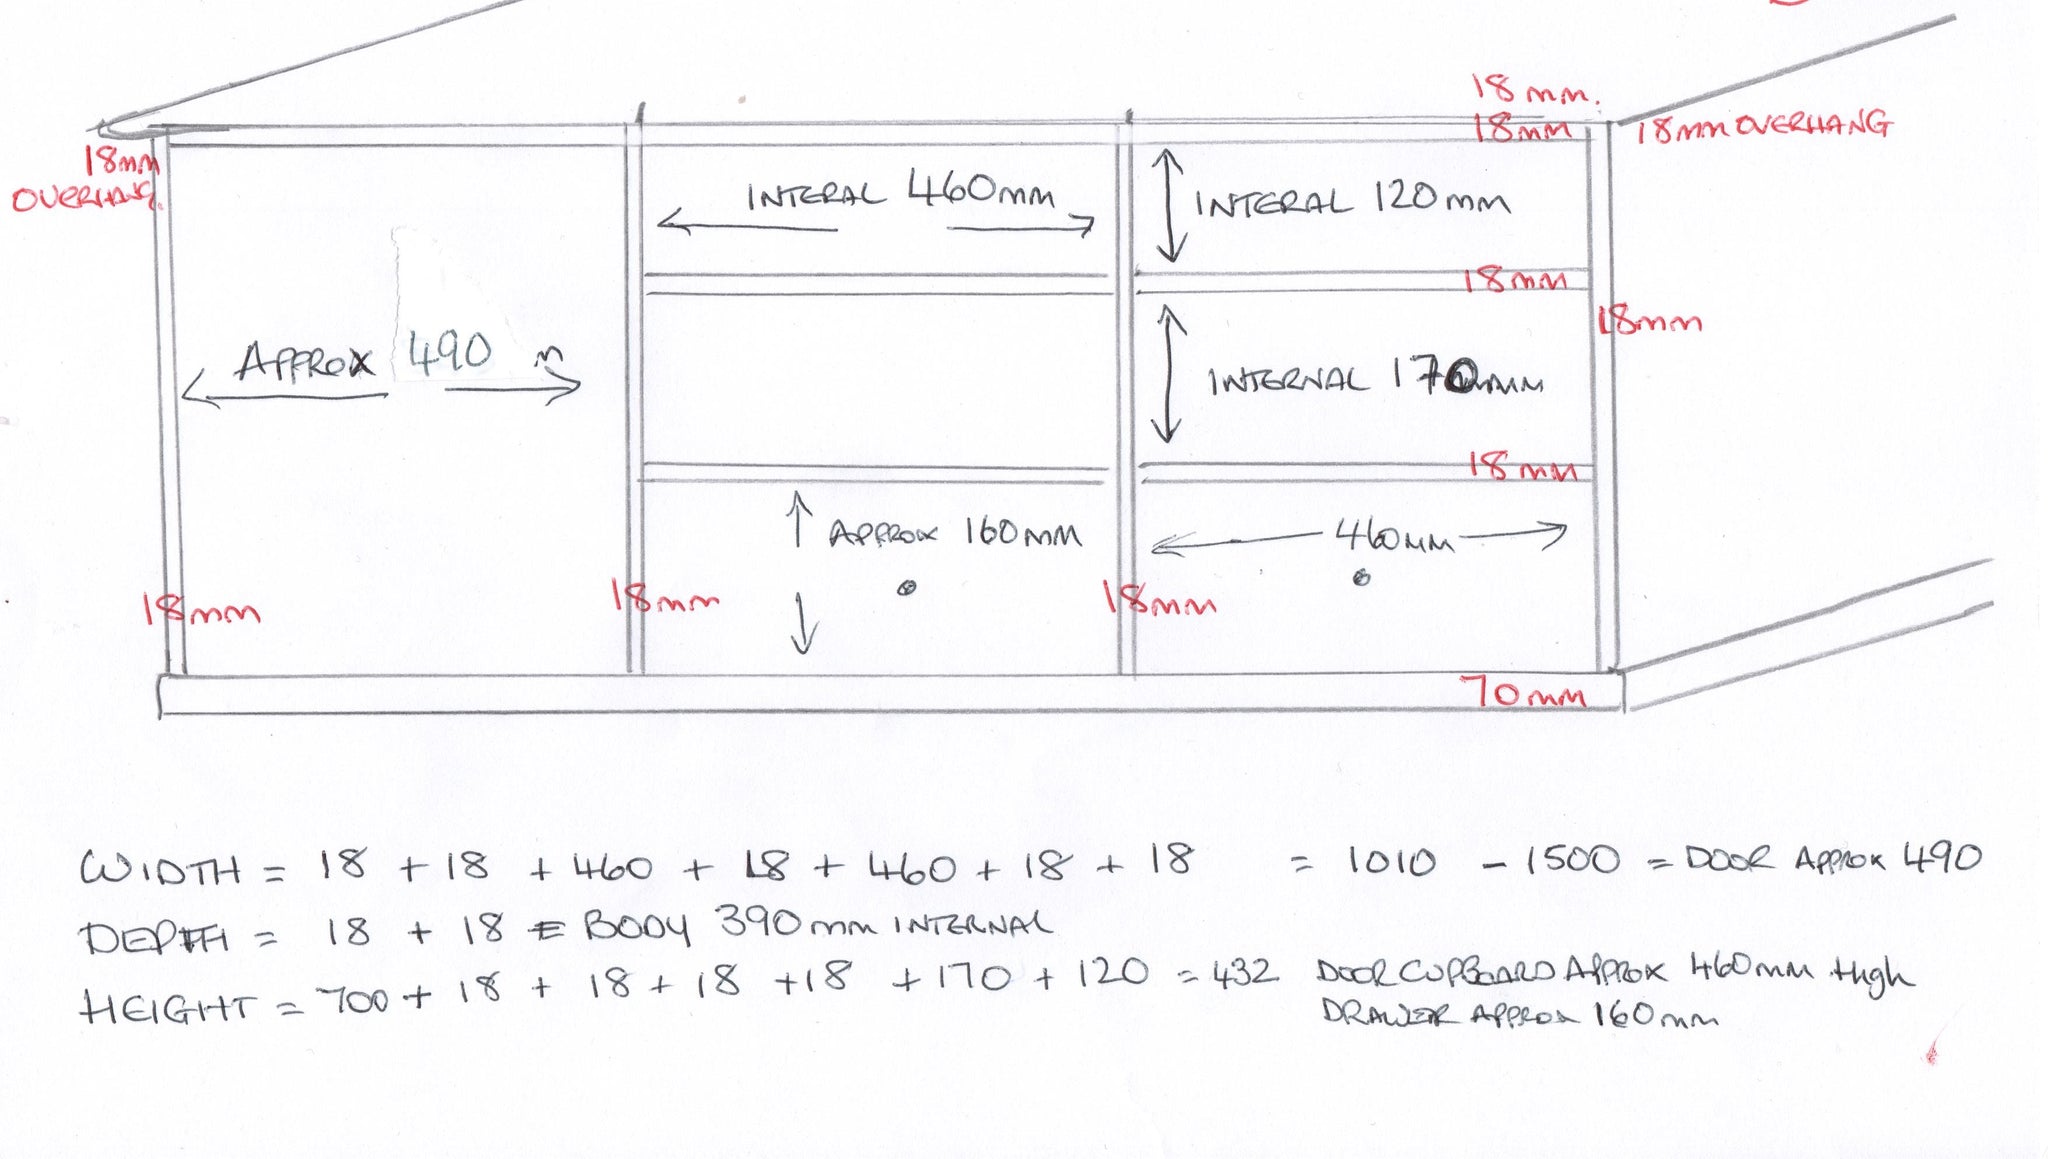 18mm.
18mm
18mm OVERHANG
18mm
OVERHANG.
INTERAL 460mm
INTERAL 120mm
18mm
18mm
APPROX 490 m
INTERNAL 170mm
18mm
APPROX 160mm
460mm
18mm
18mm
18mm
70mm
WIDTH = 18 + 18 + 460 + 18 + 460 + 18 + 18 = 1010 - 1500 = DOOR APPROX 490
DEPTH = 18 + 18 = BODY 390mm INTERNAL
HEIGHT = 700 + 18 + 18 + 18 + 18 + 170 + 120 = 432 DOOR CUPBOARD APPROX 460mm High
DRAWER APPROX 160mm